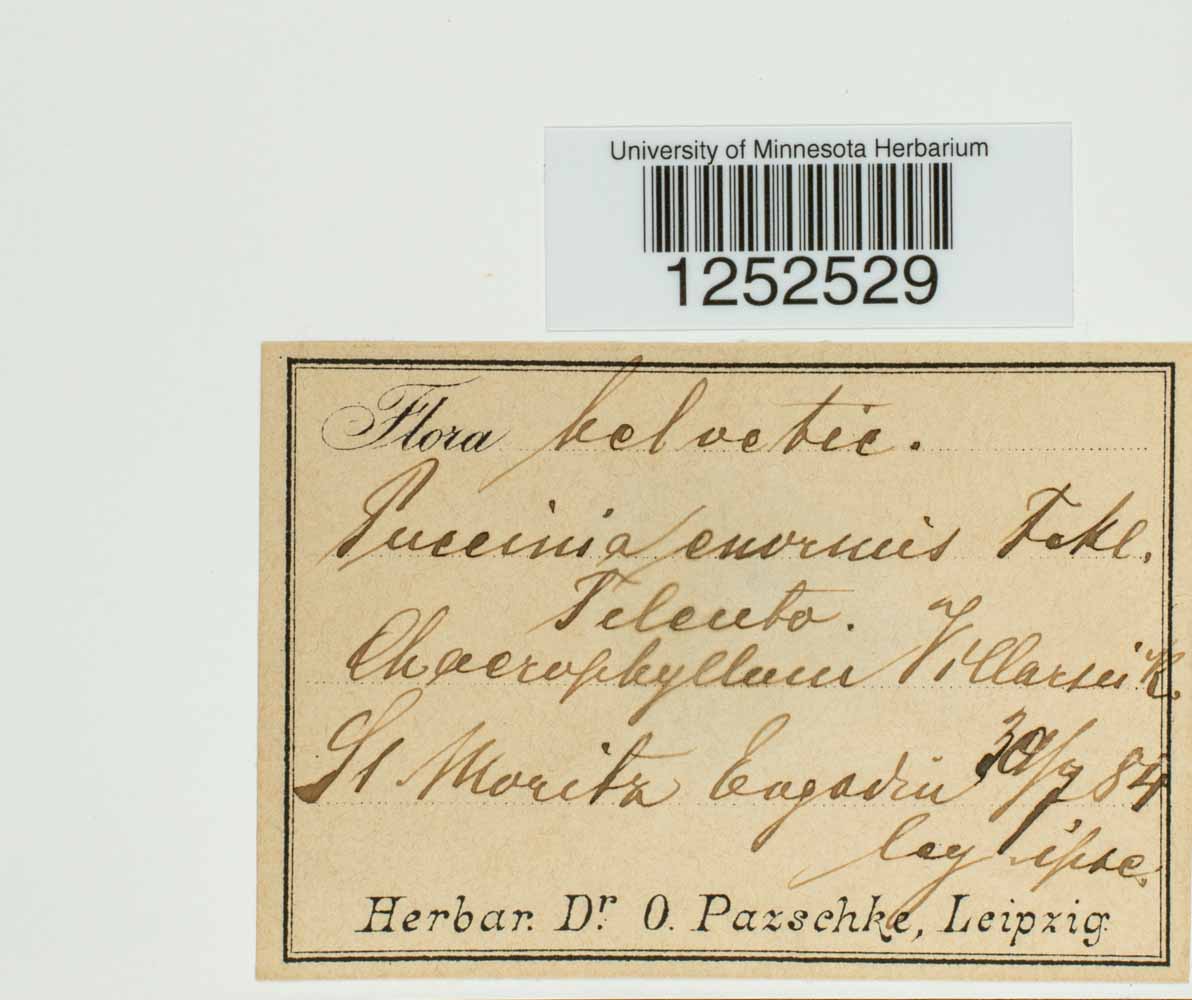 University of Minnesota Herbarium
1252529
Flora helvetic.
Puccinia enormis Fckl.
Teleuto.
Chaerophyllum Villarsii K.
St Moritz Engadin 30/7 84
leg ipse.
Herbar. Dr. O. Pazschke, Leipzig.